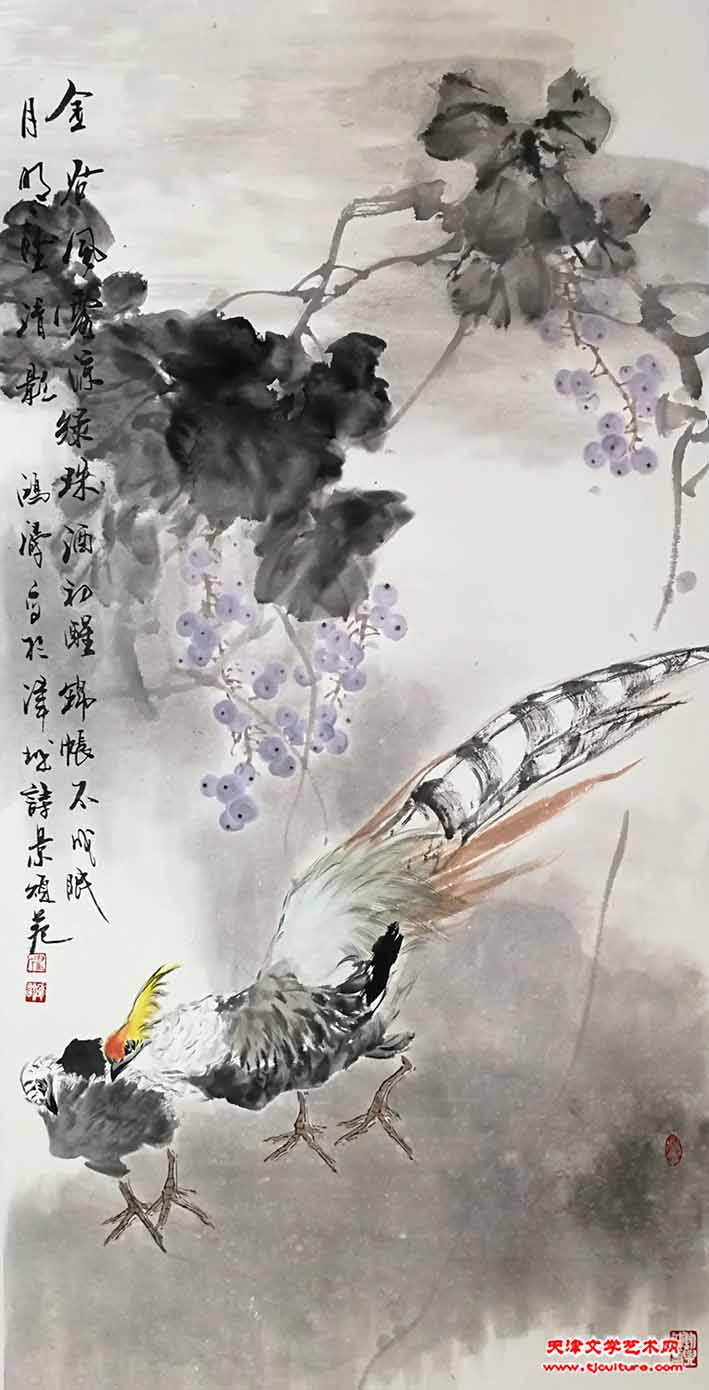 金谷风露凉绿珠酒初醒锦帐不成眠
月明坠清影 鸿涛写于津城诗景颂苑
天津文学艺术网
www.tjculture.com